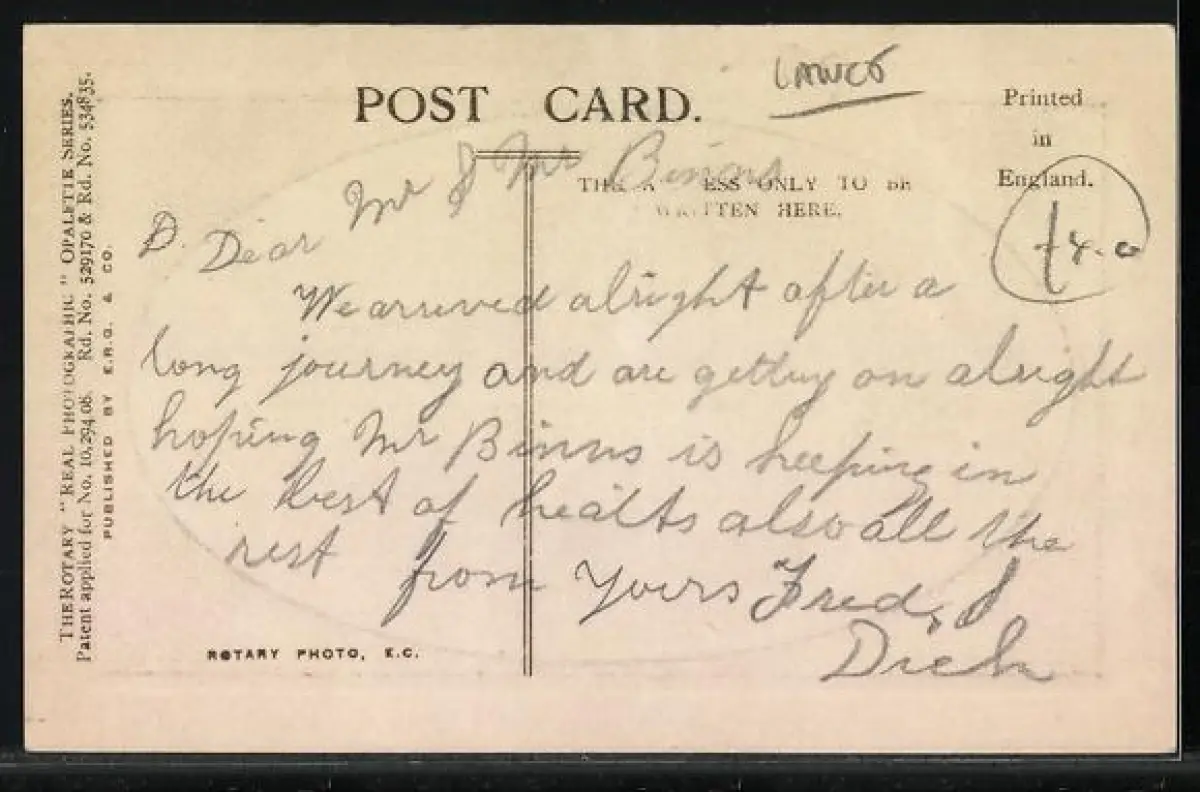 POST CARD.
Printed
in
England.
ESS ONLY TO BE
WRITTEN HERE.
THE ROTARY "REAL PHOTOGRAPHIC" OPALETTE SERIES.
Patent applied for No. 10,294.08. Rd. No. 529170 & Rd. No. 534835.
PUBLISHED BY E.R.O. & CO.
4.0
D. Dear Mr & Mrs Binns
We arrived alright after a
long journey and are getting on alright
hoping Mr Binns is keeping in
the best of health also all the
rest from Yours Fred, &
Dick
ROTARY PHOTO, E.C.